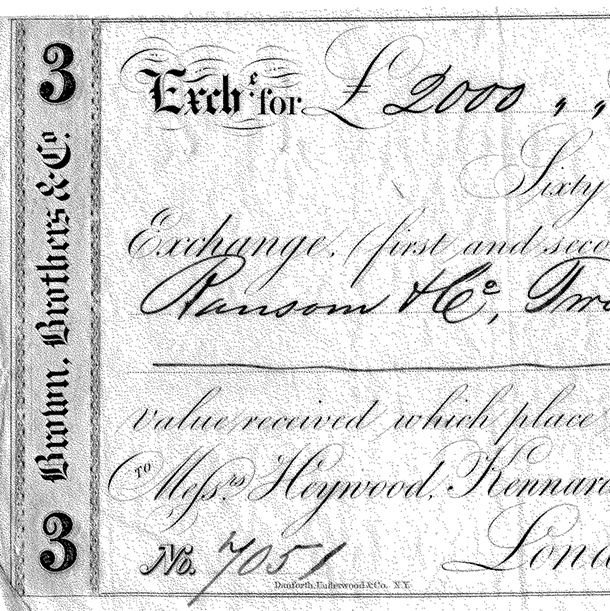 3
Brown, Brothers & Co.
3
Exche for £2000 „
Sixty
Exchange, (first and seco
Ransom & Co, Two
value received which place
TO Messrs Heywood, Kennard
No. 7051
Lond
Danforth, Underwood & Co. N.Y.